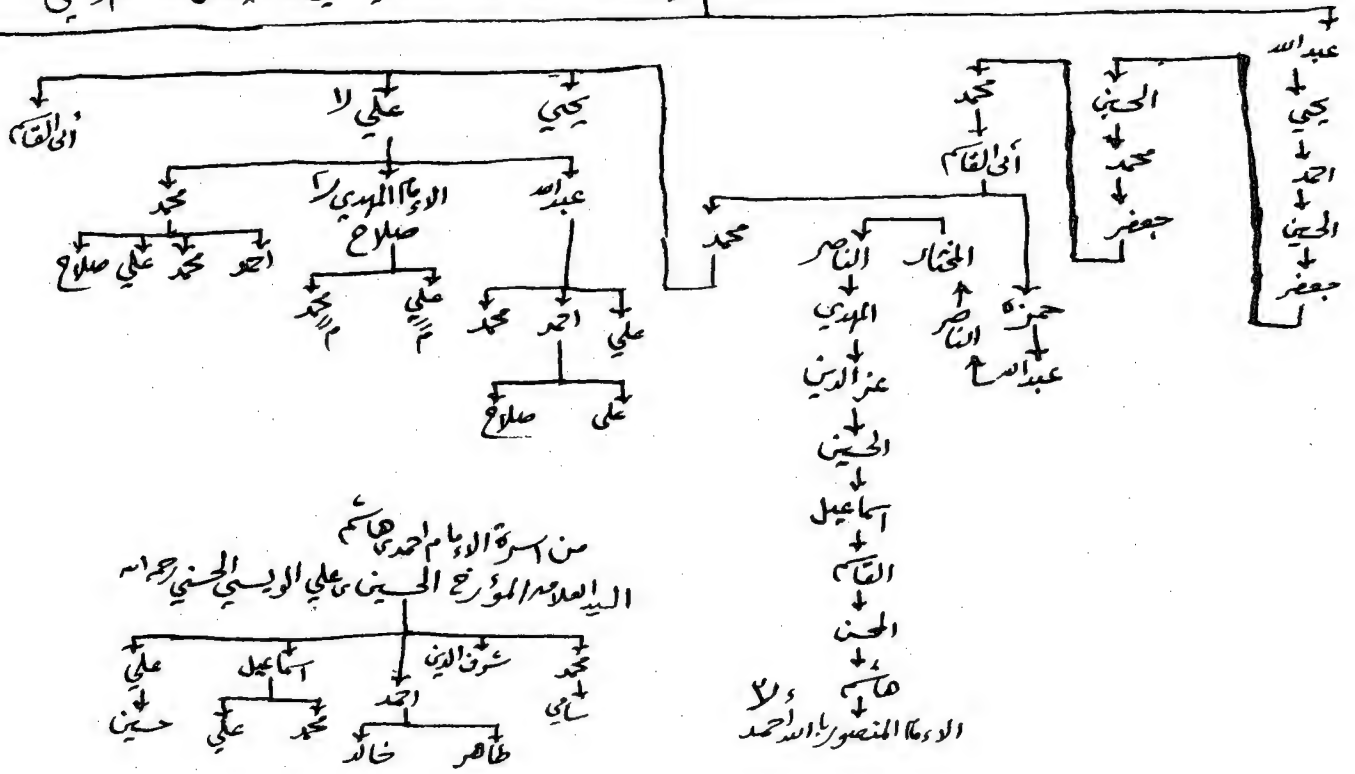 عبدالله
يحيى
احمد
الحسين
جعفر
الحسين
محمد
جعفر
محمد
أبى القاسم
حمزه
عبدالله
الناصر
المختار
الناصر
المهدي
عز الدين
الحسين
اسماعيل
القاسم
الحسن
هاشم
الامام المنصور بالله احمد
محمد
يحيي
علي
أبى القاسم
عبدالله
الامام المهدي
صلاح
محمد
علي
احمد
محمد
علي
صلاح
علي
محمد
احمد
محمد
علي
صلاح
من اسرة الامام احمد بن هاشم
السيد العلامه المؤرخ الحسين بن علي الويسي الحسني رحمه الله
محمد
شرف الدين
احمد
اسماعيل
علي
سامي
طاهر
خالد
محمد
علي
حسين